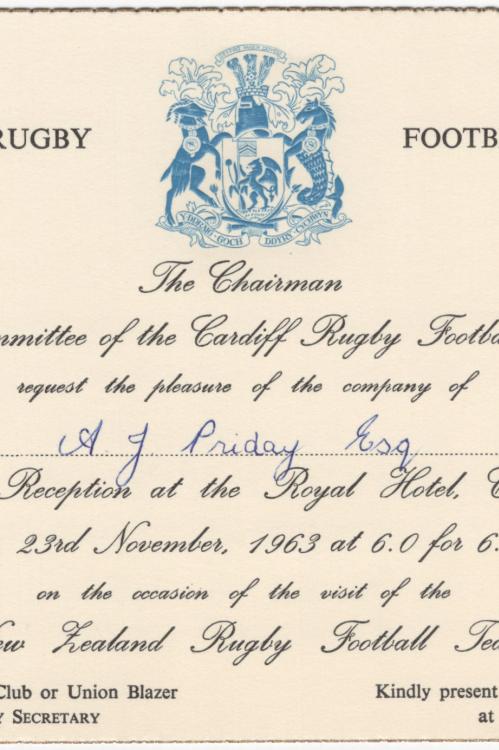 RUGBY FOOTB
Y DDRAIG GOCH DDYRY CYCHWYN
The Chairman
mmittee of the Cardiff Rugby Footba
request the pleasure of the company of
A J Priday Esq
Reception at the Royal Hotel, C
23rd November, 1963 at 6.0 for 6.
on the occasion of the visit of the
ew Zealand Rugby Football Tea
Club or Union Blazer Kindly present
Y SECRETARY at